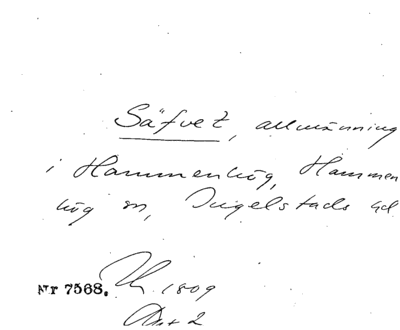 Säfvet, allmänning
i Hammenhög, Hammen
hög sn, Ingelstads hd
Nr 7568. 1809
Akt 2